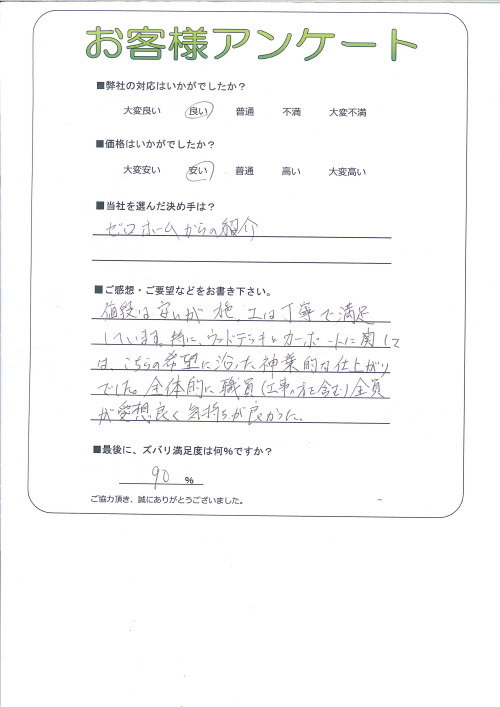 お客様アンケート
■弊社の対応はいかがでしたか？
大変良い 良い 普通 不満 大変不満
■価格はいかがでしたか？
大変安い 安い 普通 高い 大変高い
■当社を選んだ決め手は？
ゼロホームからの紹介
■ご感想・ご要望などをお書き下さい。
値段は安いが施工は丁寧で満足
しています。特に、ウッドデッキとカーポートに関して
は、こちらの希望に沿った神業的な仕上がり
でした。全体的に職員（工事の方を含む）全員
が愛想良く気持ちが良かった。
■最後に、ズバリ満足度は何％ですか？
90 ％
ご協力頂き、誠にありがとうございました。